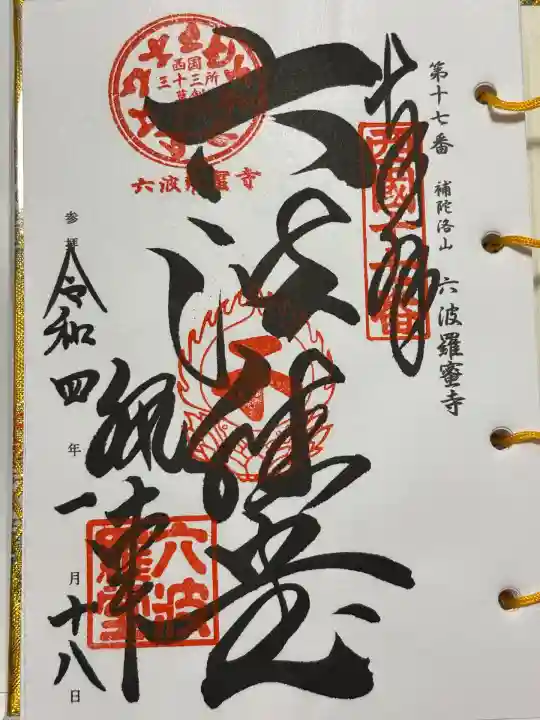 第十七番 補陀洛山 六波羅蜜寺
奉拝
西国十七番
六波羅堂
西国
三十三所
草創
六波羅蜜寺
執事
六波
羅堂
参拝 令和四年一月十八日